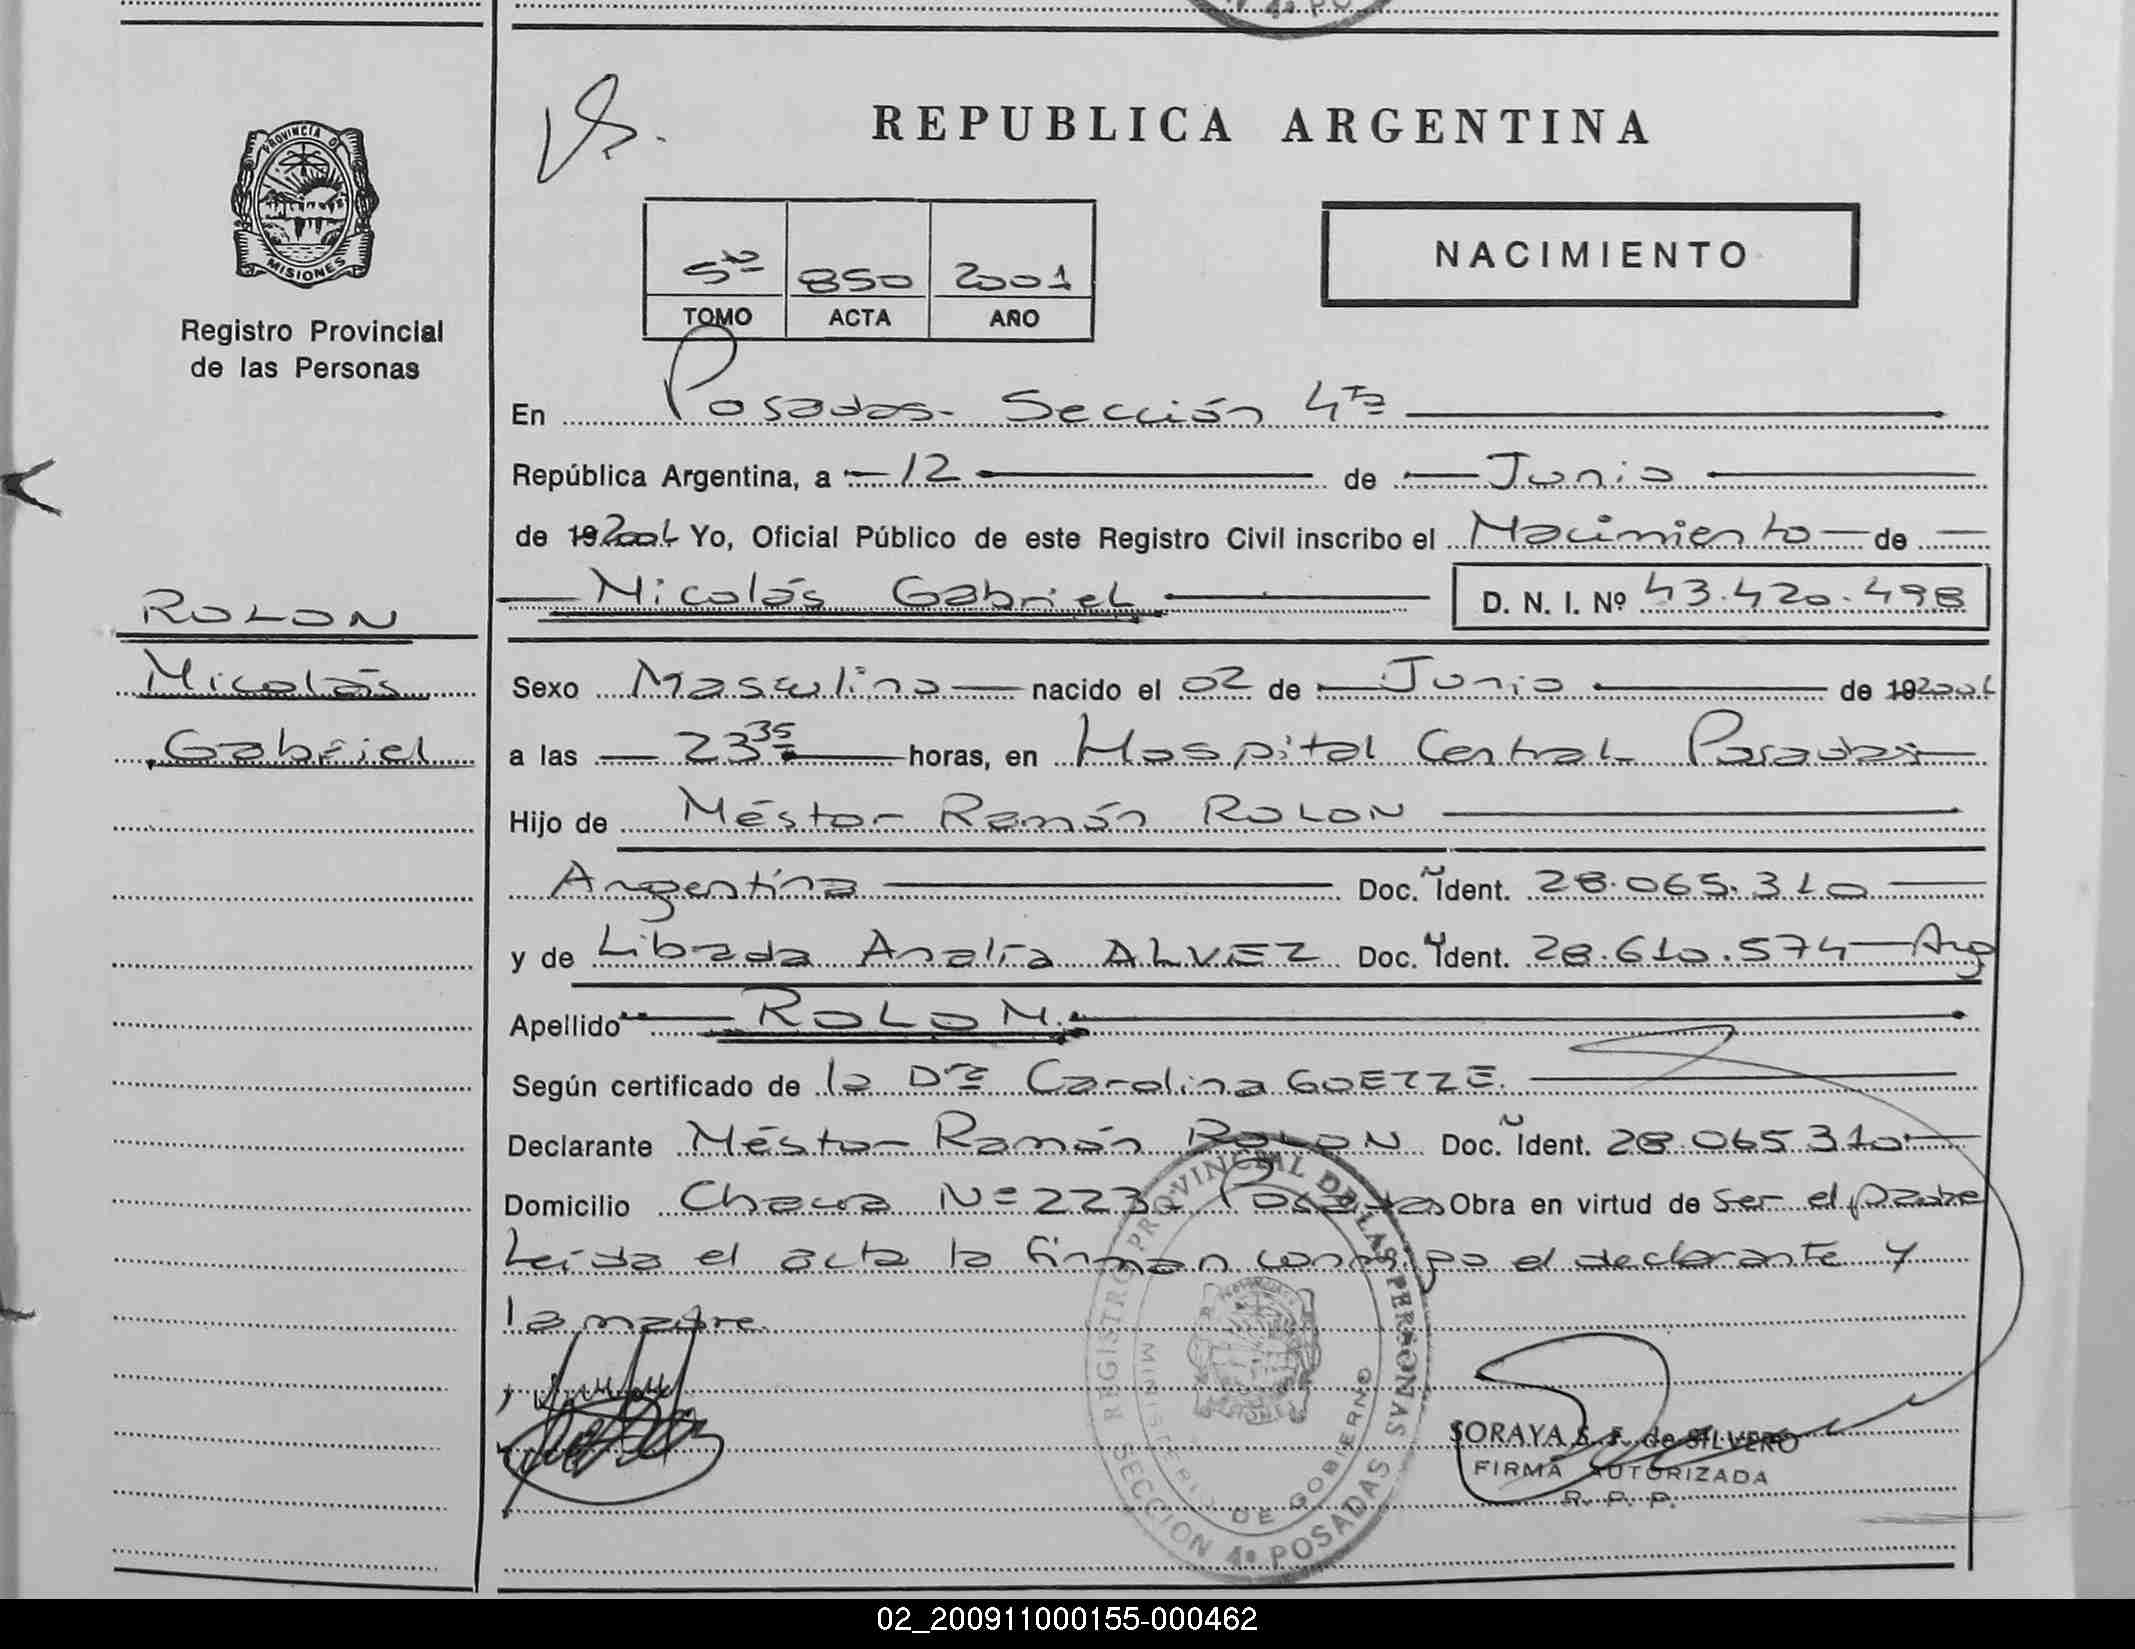 REPUBLICA ARGENTINA
PROVINCIA D
MISIONES
Registro Provincial
de las Personas
5to 850 2001
TOMO ACTA AÑO
NACIMIENTO
En Posadas- Sección 4ta
República Argentina, a 12 de Junio
de 19 2001 Yo, Oficial Público de este Registro Civil inscribo el Nacimiento de
Nicolás Gabriel D. N. I. Nº 43.420.498
ROLON
Nicolás
Gabriel
Sexo Masculino nacido el 02 de Junio de 19 2001
a las 23 35 horas, en Hospital Central Posadas
Hijo de Néstor Ramón ROLON
Argentina Doc. Ident. 28.065.310
y de Librada Analía ALVEZ Doc. Ident. 28.610.574 Arg
Apellido ROLON.
Según certificado de la Dra Carolina GOETZE.
Declarante Néstor Ramón ROLON Doc. Ident. 28.065.310
Domicilio Nº 223- Posadas Obra en virtud de ser el padre
Leida el acta la firman conmigo el declarante y
la madre.
REGISTRO PROVINCIAL DE LAS PERSONAS
MINISTERIO DE GOBIERNO
SECCION 4ª POSADAS
SORAYA S. F. de SILVERO
FIRMA AUTORIZADA
R. P. P.
02_200911000155-000462